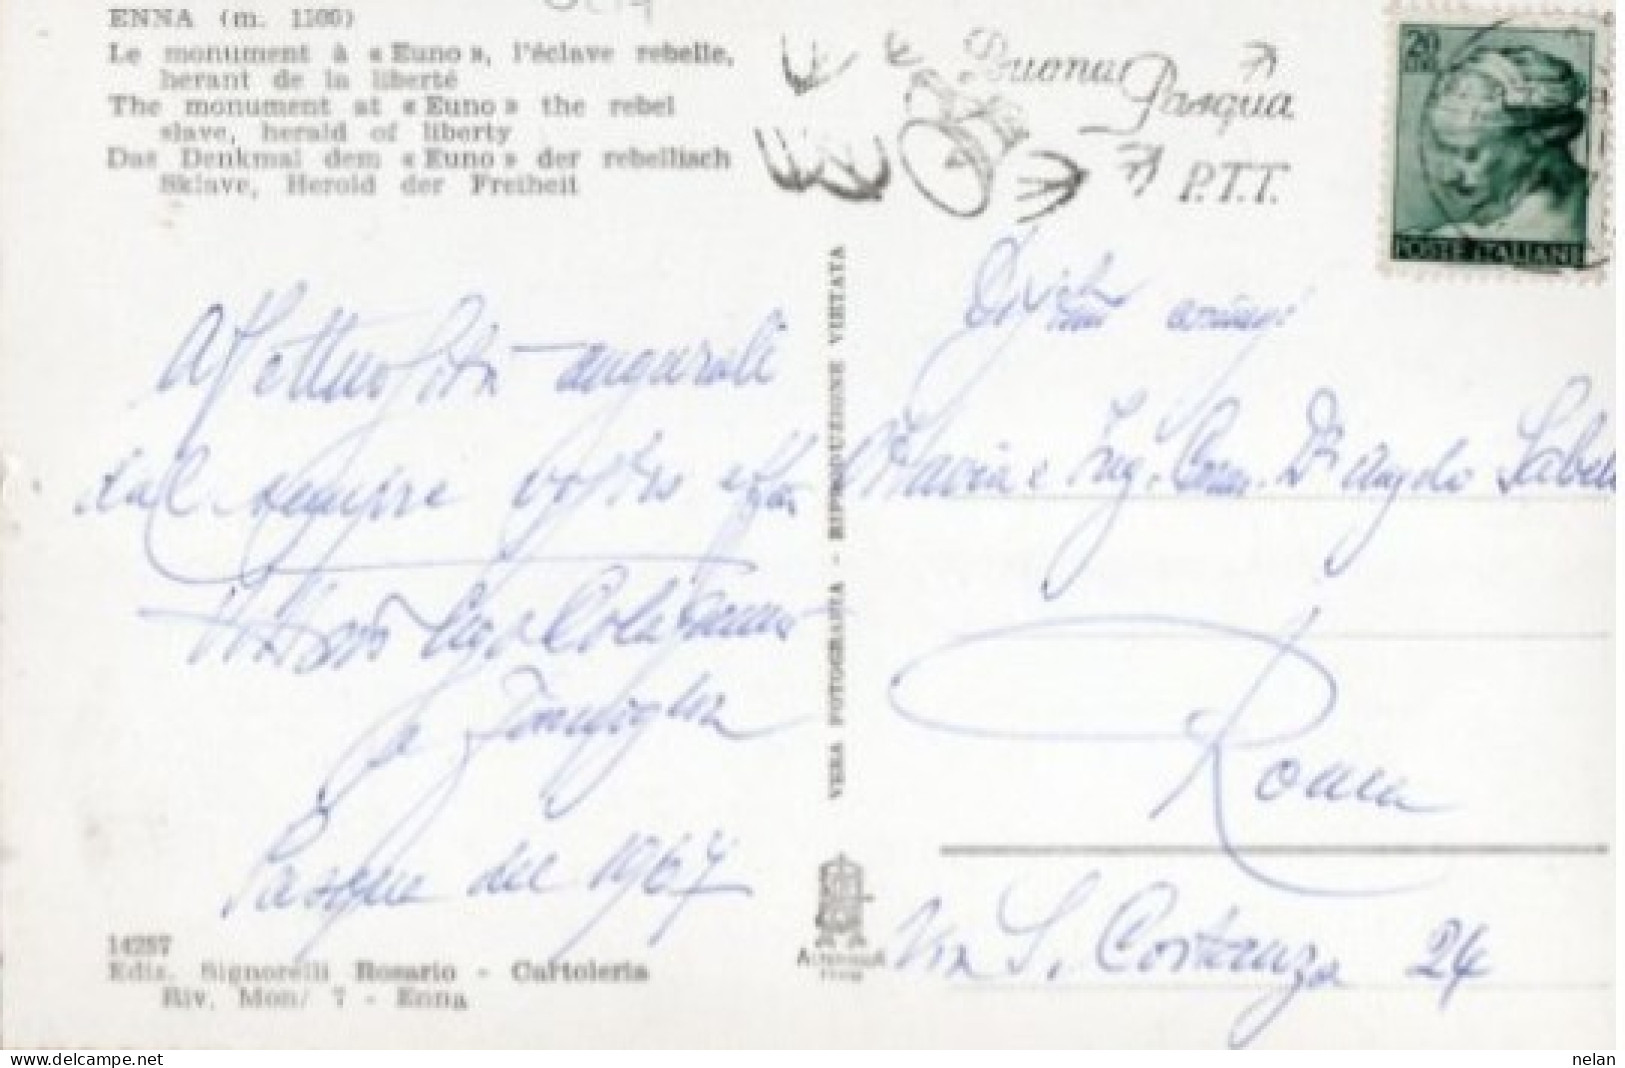 ENNA (m. 1100)
Le monument à « Euno », l'éclave rebelle,
herant de la liberté
The monument at « Euno » the rebel
slave, herald of liberty
Das Denkmal dem « Euno » der rebellisch
Sklave, Herold der Freiheit
Buona
Pasqua
P.T.T.
20
LIRE
POSTE ITALIANE
auguroli
dal sempre vostro
e Famiglia
Pasqua del 1967
14257
Ediz. Signorelli Rosario - Cartoleria
Riv. Mon/ 7 - Enna
VERA FOTOGRAFIA - RIPRODUZIONE VIETATA
amici
Flavia e Ing. Com. Dr Angelo
Roma
Via S. Costanza 24
nelan
www.delcampe.net